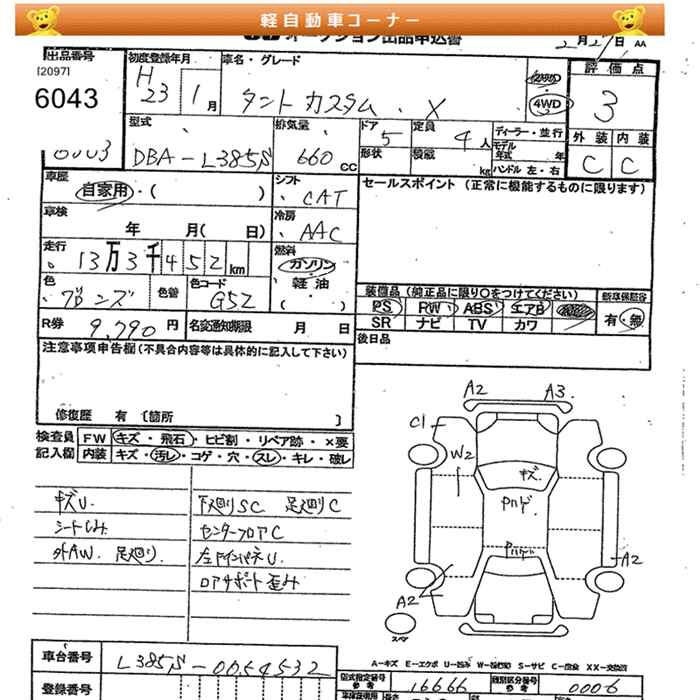 軽自動車コーナー
オークション出品申込書
2月27日 AA
出品番号
[2097]
6043
初度登録年月
H23 1月
車名・グレード
タントカスタム . X
4WD
評価点
3
外装 内装
C C
型式
DBA-L385S
排気量
660 CC
ドア
5
形状
定員
4人
積載
kg
ディーラー・並行
モデル年式 年
ハンドル 左・右
車歴
自家用・( )
シフト
CAT
セールスポイント (正常に機能するものに限ります)
車検
年 月( 日)
冷房
AAC
走行
13万3千452km
燃料
ガソリン・軽油・( )
色
ブロンズ
色替
色コード
G52
装備品 (純正品に限り○をつけてください)
PS PW ABS エアB
SR ナビ TV カワ
新車保証書
有・無
R券
9,790円
名変通知期限 月 日
後日品
注意事項申告欄(不具合内容等は具体的に記入して下さい)
修復歴 有〔箇所 〕
検査員記入欄
FW キズ・飛石・ヒビ割・リペア跡・×要
内装 キズ・汚レ・コゲ・穴・スレ・キレ・破レ
キズU.
シートしみ
外AW. 足廻り.
下廻りSC 足廻りC
センターフロアC
ロアサポート歪み
A2 A3
C1
W2
キズ
A2
A2
スペア
車台番号
L385S-0054532
登録番号
A-キズ E-エクボ U-凹み W-補修跡 S-サビ C-腐食 XX-交換済
型式指定番号
16666
類別区分番号
0006